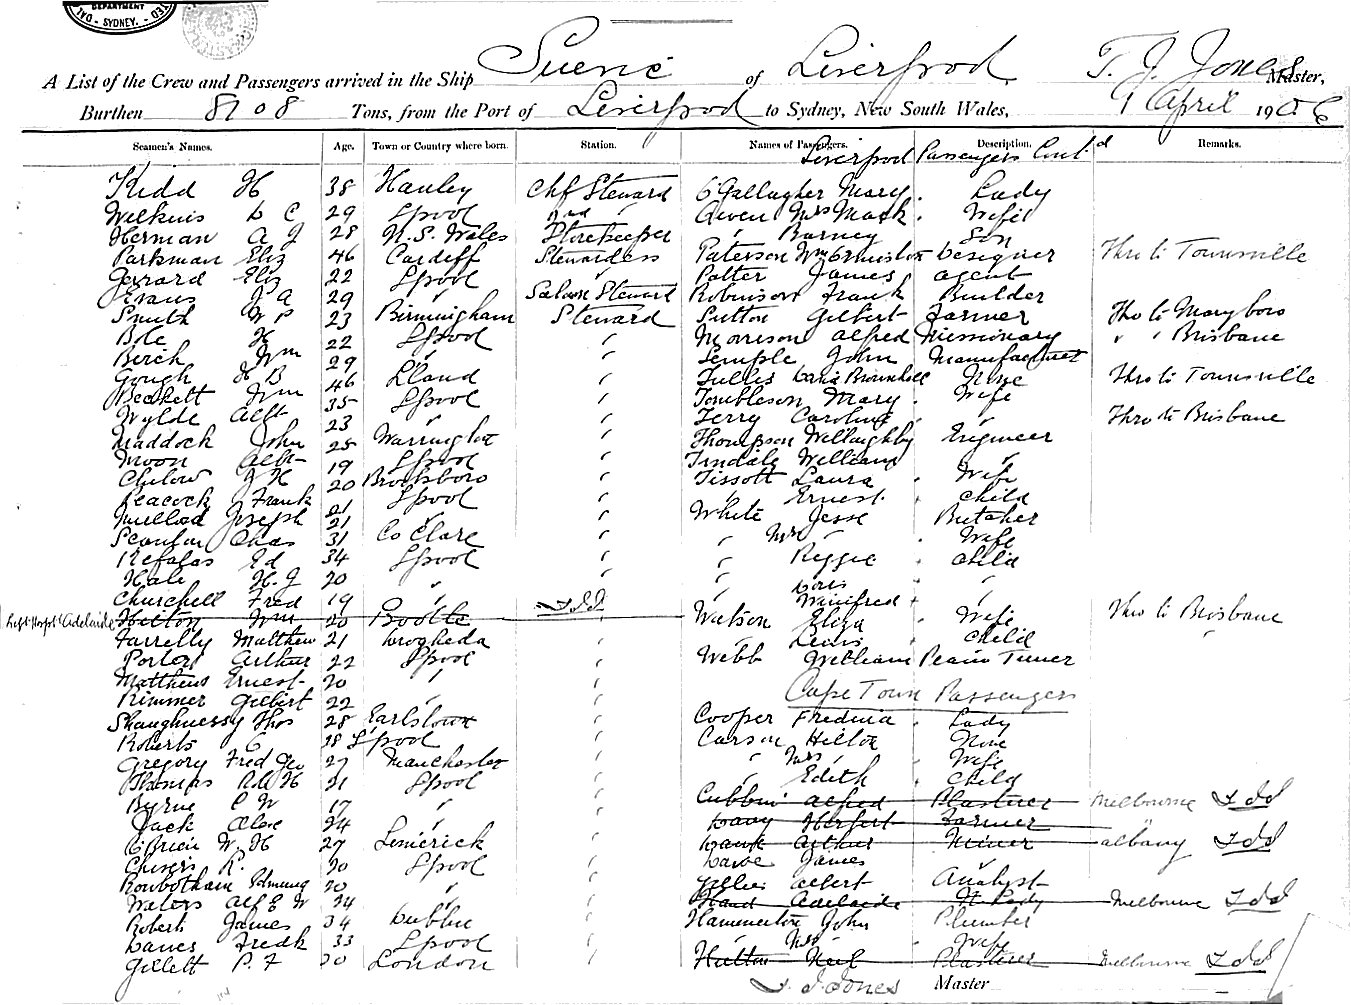 DEPARTMENT
- SYDNEY. -
A List of the Crew and Passengers arrived in the Ship Suevic of Liverpool T. J. Jones Master,
Burthen 8108 Tons, from the Port of Liverpool to Sydney, New South Wales, 9 April 1906
Seamen's Names. Age. Town or Country where born. Station. Names of Passengers. Description. Remarks.
Liverpool Passengers Contd
Kidd H 38 Hanley Chf Steward O'Gallagher Mary Lady
Wilkins D C 29 Lpool 2nd " Owen Mrs Mark Wife
Herman A J 28 N. S. Wales Storekeeper " Barney Son
Parkman Eliz 46 Cardiff Stewardess Paterson Wm Ormiston Designer Thro to Townsville
Gerrard Eliz 22 Lpool " Potter James Agent
Evans J A 29 " Saloon Steward Robinson Frank Builder
Smith W P 23 Birmingham Steward Sutton Gilbert Farmer Thro to Maryboro
Bole H 22 Lpool " Morrison Alfred Missionary " " Brisbane
Berch Wm 29 " " Semple John Manufacturer
Gough H B 46 Lland " Tulles Brownhill None Thro to Townsville
Beckett Wm 35 Lpool " Tombleson Mary Wife
Wylde Albt 23 " " Terry Caroline " Thro to Brisbane
Maddock John 25 Warrington " Thompson Willoughby Engineer
Moon Albt 19 Lpool " Tindale William "
Chilow J H 20 " Tissott Laura Wife
Peacock Frank 21 Lpool " " Ernest Child
Joseph 21 " " White Jesse Butcher
Scanlan Chas 31 Co Clare " " Mrs Wife
Refalos Ed 34 Lpool " " Reggie Child
Hale H. J 20 " " " Doris "
Churchill Fred 19 " " Winifred "
Left Hospl Adelaide Hilton Wm 20 Bootle " Watson Eliza Wife Thro to Brisbane
Farrelly Matthew 21 Drogheda " Lewis Child "
Porter Arthur 22 Lpool " Webb William Piano Tuner
Matthews Ernest 20 " "
Cape Town Passengers
Rimmer Gilbert 22 " "
Shaughnessy Thos 28 Earlstown " Cooper Fredina Lady
Roberts C 28 Lpool " Carson Hilton None
Gregory Fred Geo 27 Manchester " " Mrs Wife
Thomas R. H 21 Lpool " " Edith Child
Byrne C W 17 " " Cubbin Alfred Plasterer Melbourne
Jack Alex 24 " " Davy Herbert Farmer
O'Brien W. H 27 Limerick " Hawk Arthur Miner Albany
R. 20 Lpool " James "
Rowbotham Edmund 20 " " Gillies Albert Analyst
Waters Alf E W 34 " " Hand Adelaide Lady Melbourne
Robert James 34 Dublin " Hammerton John Plumber
Danes Fredk 33 Lpool " " Mrs Wife
Gillett P. F 20 London " Hutton Neil Plasterer Melbourne
T. J. Jones Master